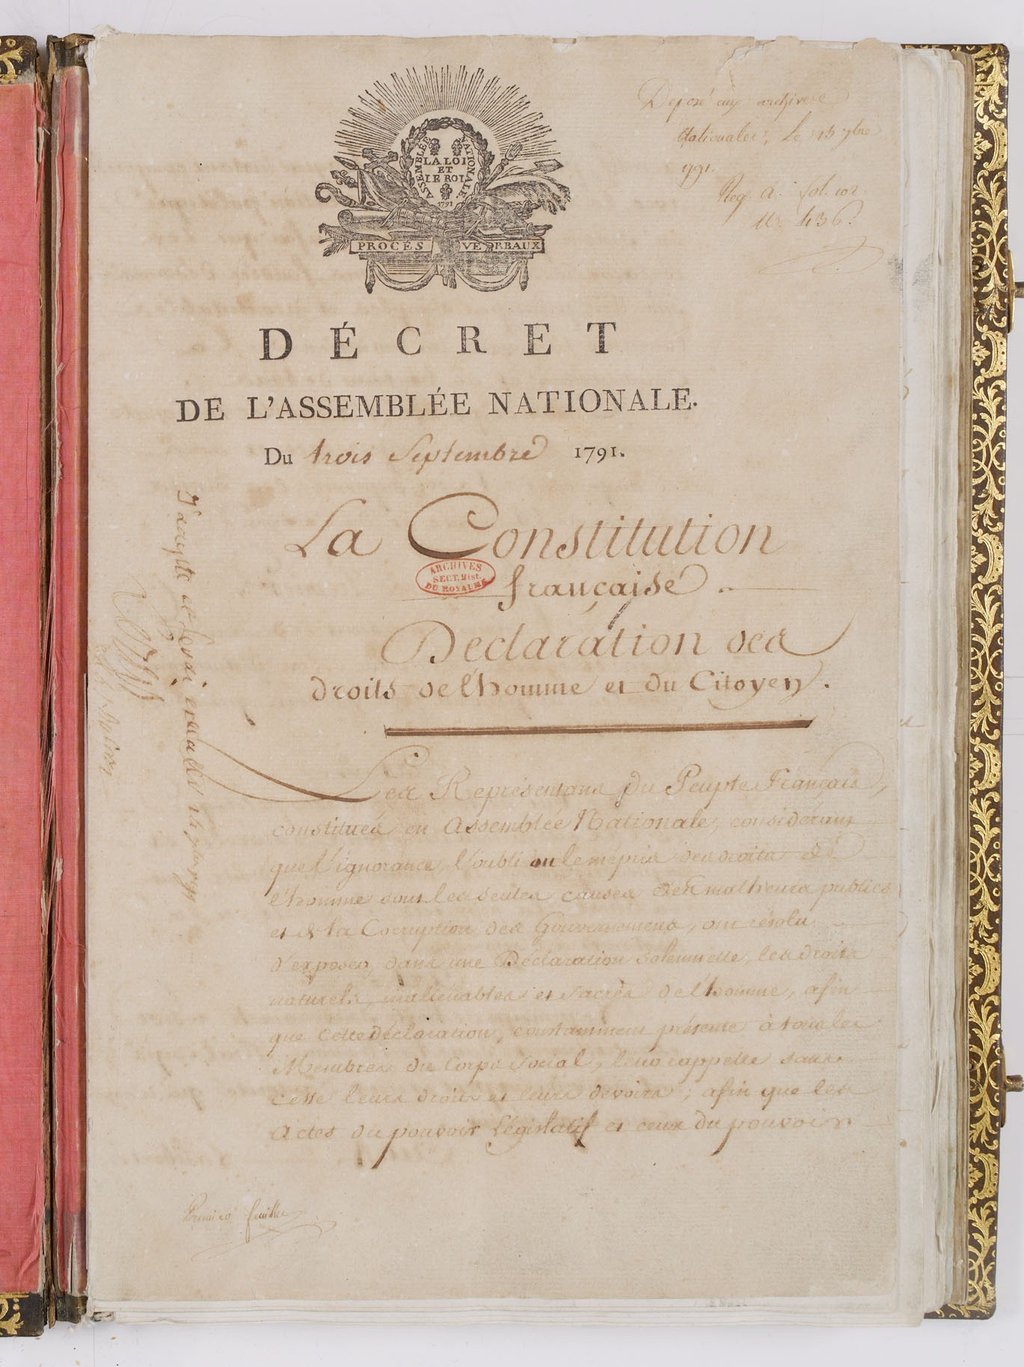 ASSEMBLÉE NATIONALE
LA LOI
ET
LE ROI
1791
PROCÈS VERBAUX
Deposé aux archives
nationales, le
1791.
Reg. A. fol. 102
n. 436.
DÉCRET
DE L'ASSEMBLÉE NATIONALE.
Du trois Septembre 1791.
La Constitution
française.
ARCHIVES
SECT. Hist.
DU ROYAUME
Déclaration des
droits de l'homme et du Citoyen.
Les Représentans du Peuple Français,
constitués en Assemblée Nationale, considérant
que l'ignorance, l'oubli ou le mépris des droits de
l'homme sont les seules causes des malheurs publics
et de la Corruption des Gouvernemens, ont résolu
d'exposer, dans une Déclaration Solemnelle, les droits
naturels, inaliénables et sacrés de l'homme, afin
que cette déclaration, constamment présente à tous les
Membres du Corps Social, leur rappelle sans
cesse leurs droits et leurs devoirs; afin que les
Actes du pouvoir Législatif et ceux du pouvoir
J'accepte et ferai exécuter
Louis
Premier feuillet